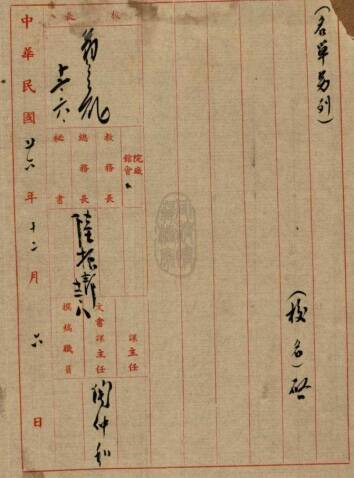 （名單另列）
（校名）啟
院廠館會
教務長
總務長
秘書
課主任
文書課主任
撰稿職員
校長
翁之龍
十二六
陸振邦
十二八
仲和
中華民國廿六年十二月六日